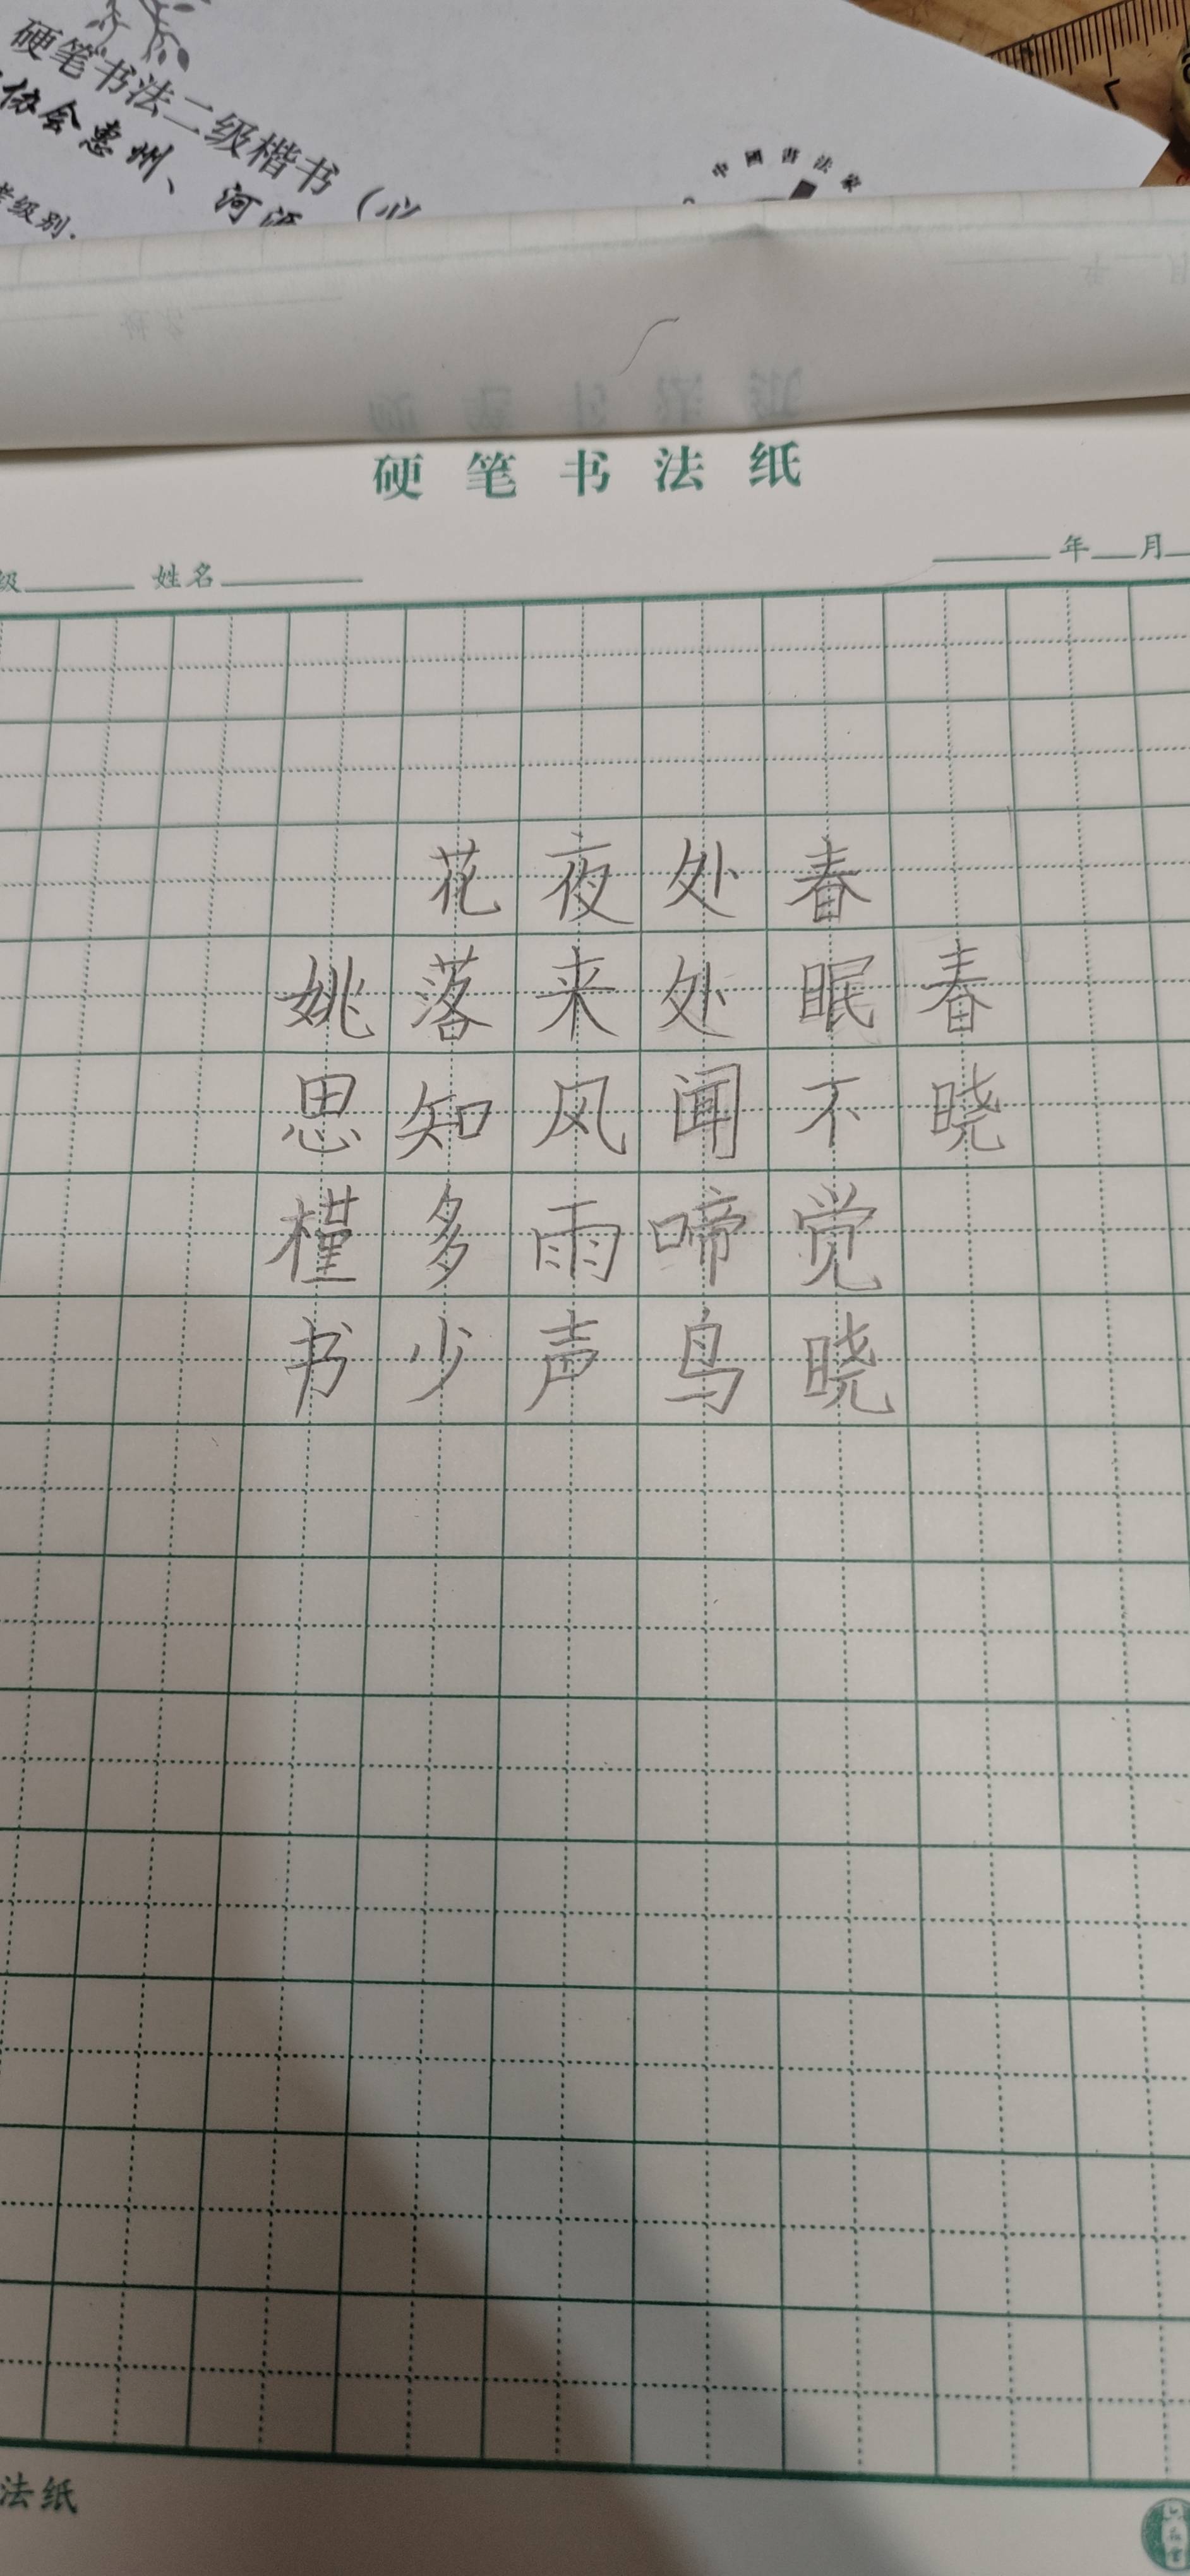 硬笔书法二级楷书（必
协会惠州、河源
考级别.
中國書法家
硬笔书法纸
级 姓名 年 月
春晓
春眠不觉晓
处处闻啼鸟
夜来风雨声
花落知多少
姚思槿书
法纸